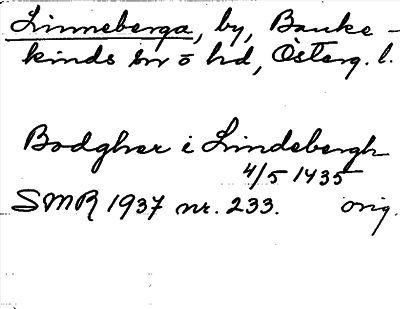 Linneberga, by, Banke-
kinds sn o hd, Österg. l.
Bodgher i Lindebergh
4/5 1435
SMR 1937 nr. 233. orig.